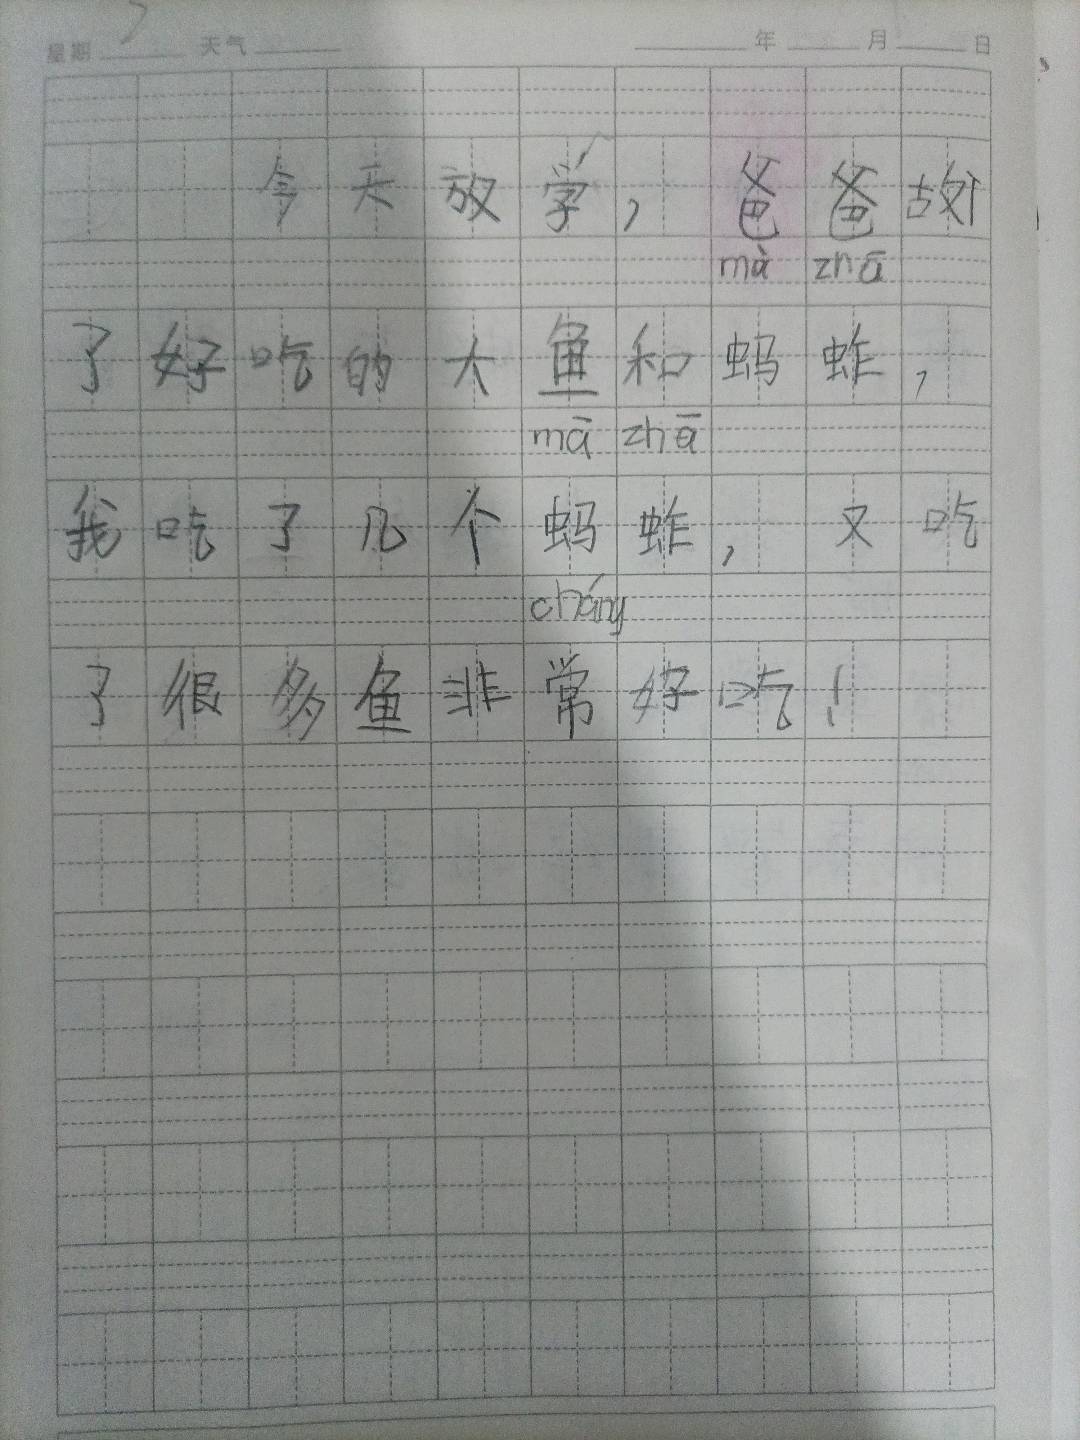 星期 天气 年 月 日
今天放学，爸爸故
mà zhā
了好吃的大鱼和蚂蚱，
mā zhā
我吃了几个蚂蚱，又吃
cháng
了很多鱼非常好吃！